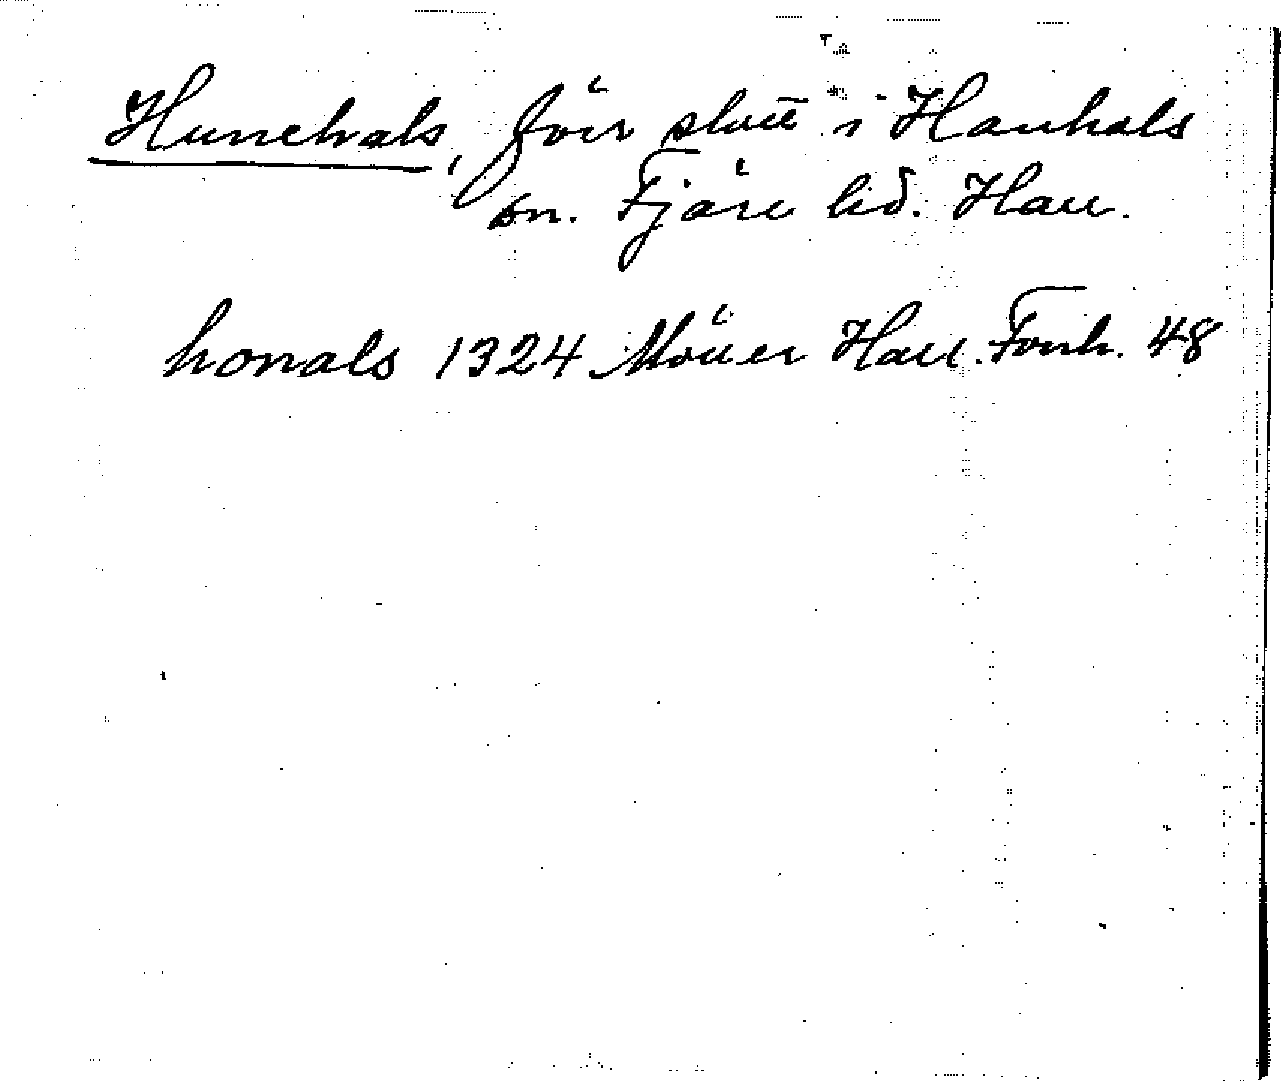 Hunehals, förr slott i Hanhals
sn. Fjäre hd. Hall.
honals 1324 Möller Hall. Fornh. 48